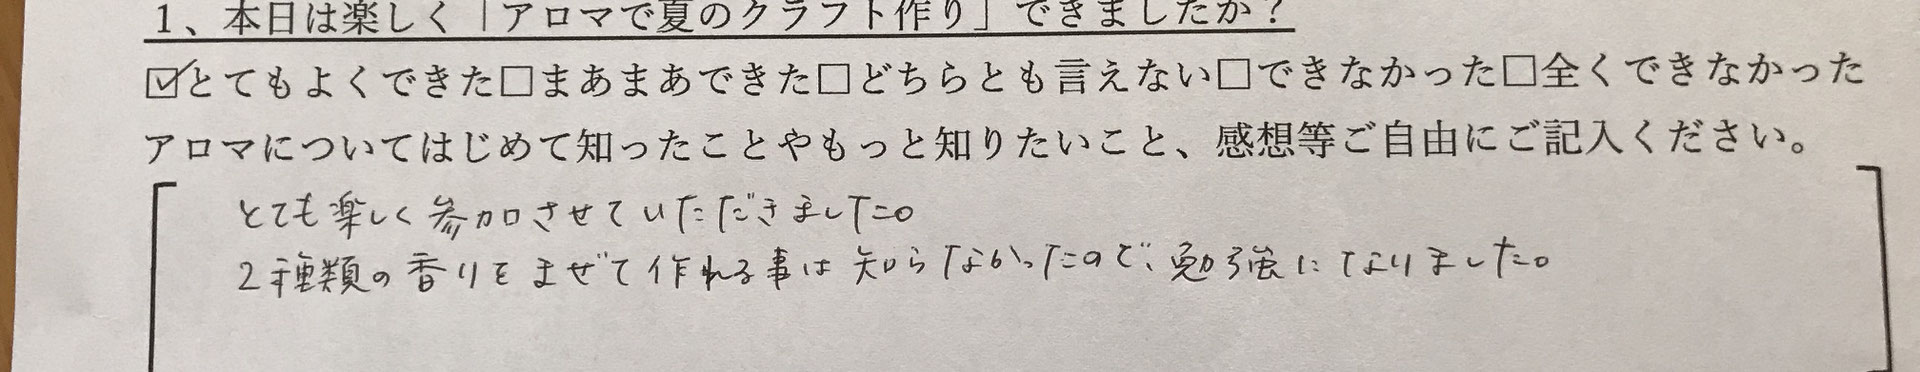 1、本日は楽しく「アロマで夏のクラフト作り」できましたか？
☑とてもよくできた□まあまあできた□どちらとも言えない□できなかった□全くできなかった
アロマについてはじめて知ったことやもっと知りたいこと、感想等ご自由にご記入ください。
とても楽しく参加させていただきました。
2種類の香りをまぜて作れる事は知らなかったので、勉強になりました。